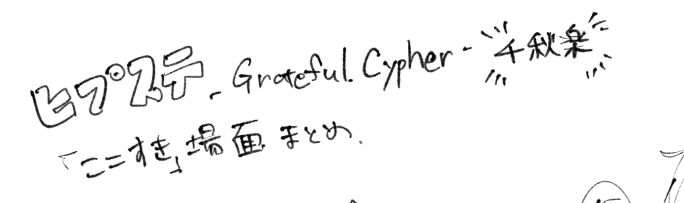 ヒプステ - Grateful Cypher - 千秋楽
「ここすき」場面まとめ.